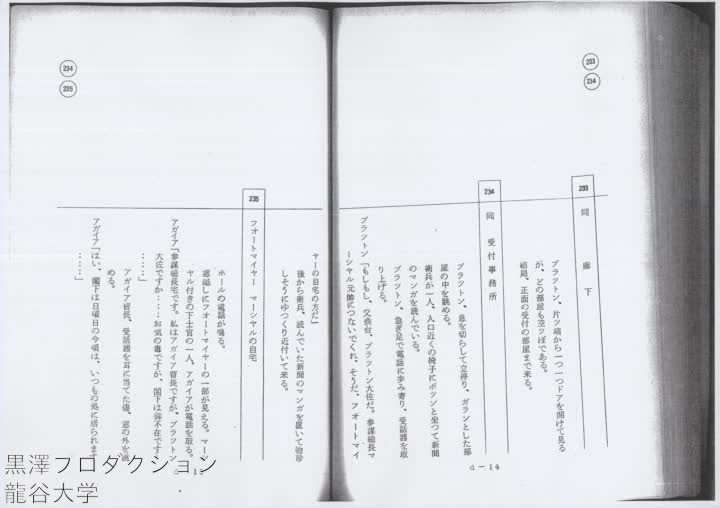 233
234
233 同 廊下
ブラツトン、片ツ端から一つ一つドアを開けて見る
が、どの部屋も空ツぽである。
結局、正面の受付の部屋まで来る。
234 同 受付事務所
ブラツトン、息を切らして立停り、ガランとした部
屋の中を眺める。
衛兵が一人、入口近くの椅子にポツンと坐つて新聞
のマンガを読んでいる。
ブラツトン、急ぎ足で電話に歩み寄り、受話器を取
り上げる。
ブラツトン「もしもし、交換台、ブラツトン大佐だ。参謀総長マ
ーシヤル元帥につないでくれ、そうだ、フオートマイ
d－14
234
235
ヤーの自宅の方だ」
後から衛兵、読んでいた新聞のマンガを置いて物珍
しそうにゆつくり近付いて来る。
235 フオートマイヤー マーシヤルの自宅
ホールの電話が鳴る。
窓越しにフオートマイヤーの一部が見える。マーシ
ヤル付きの下士官の一人、アガイアが電話を取る。
アガイア「参謀総長宅です。私はアガイア曹長ですが、ブラツトン
大佐ですか……お気の毒ですが、閣下は御不在です
……」
アガイア曹長、受話器を耳に当てた儘、窓の外を眺
める。
アガイア「はい、閣下は日曜日の今頃は、いつもの処に居られます
……」
黒澤プロダクション
龍谷大学